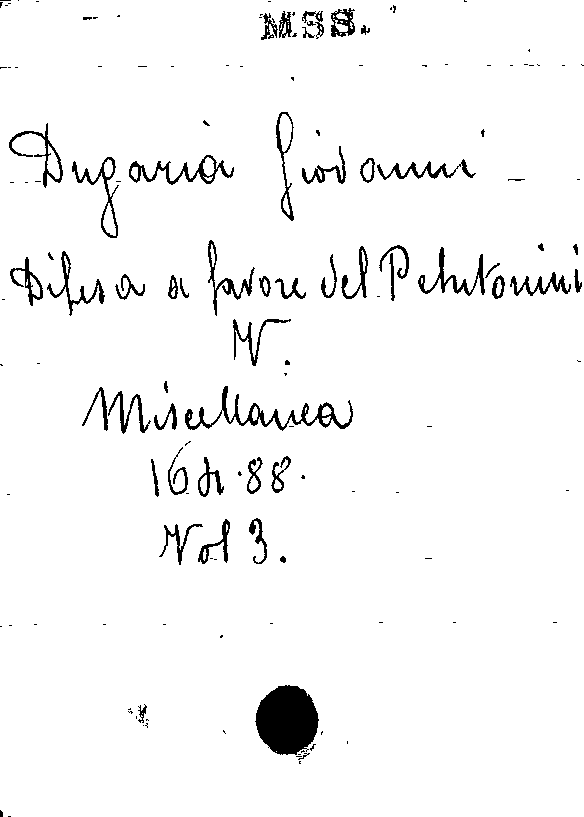 MSS.
Dugaria Giovanni
Difesa a favore del Petutonini
V.
Miscellanea
16 H. 88.
Vol 3.